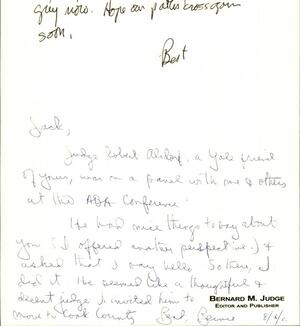 grey now. Hope our paths cross again
soon.
Best
Jack,
Judge Robert Alsdorf, a Yale friend
of yours, was on a panel with me & others
at the ABA Conference.
He had nice things to say about
you (I offered another perspective.) &
asked that I say hello. So there, I
did it. He seemed like a thoughtful &
decent judge. I invited him to
move to Cook County Best, Bernie 8/6/
BERNARD M. JUDGE
EDITOR AND PUBLISHER